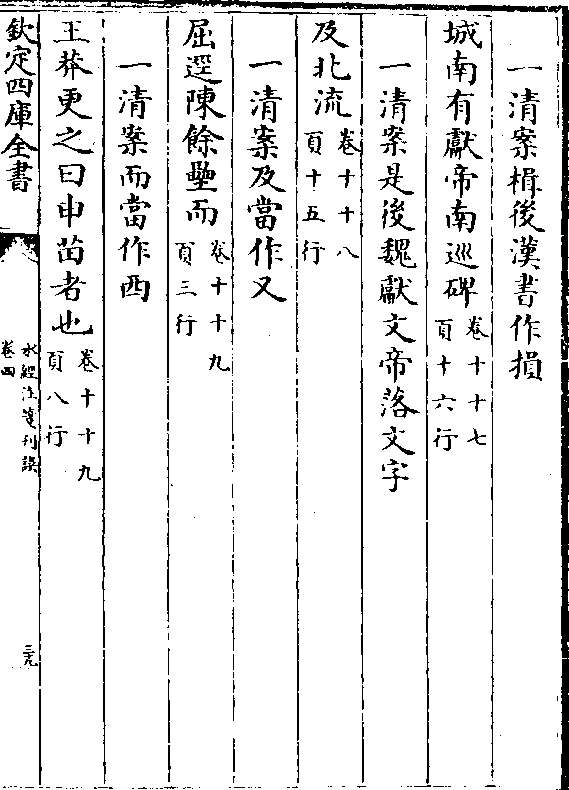 一清案楫後漢書作損
城南有獻帝南巡碑卷十十七頁十六行
一清案是後魏獻文帝落文字
及北流卷十十八頁十五行
一清案及當作又
屈逕陳餘壘而卷十十九頁三行
一清案而當作西
王莽更之曰申苗者也卷十十九頁八行
欽定四庫全書
水經注箋刊誤
卷四
三九